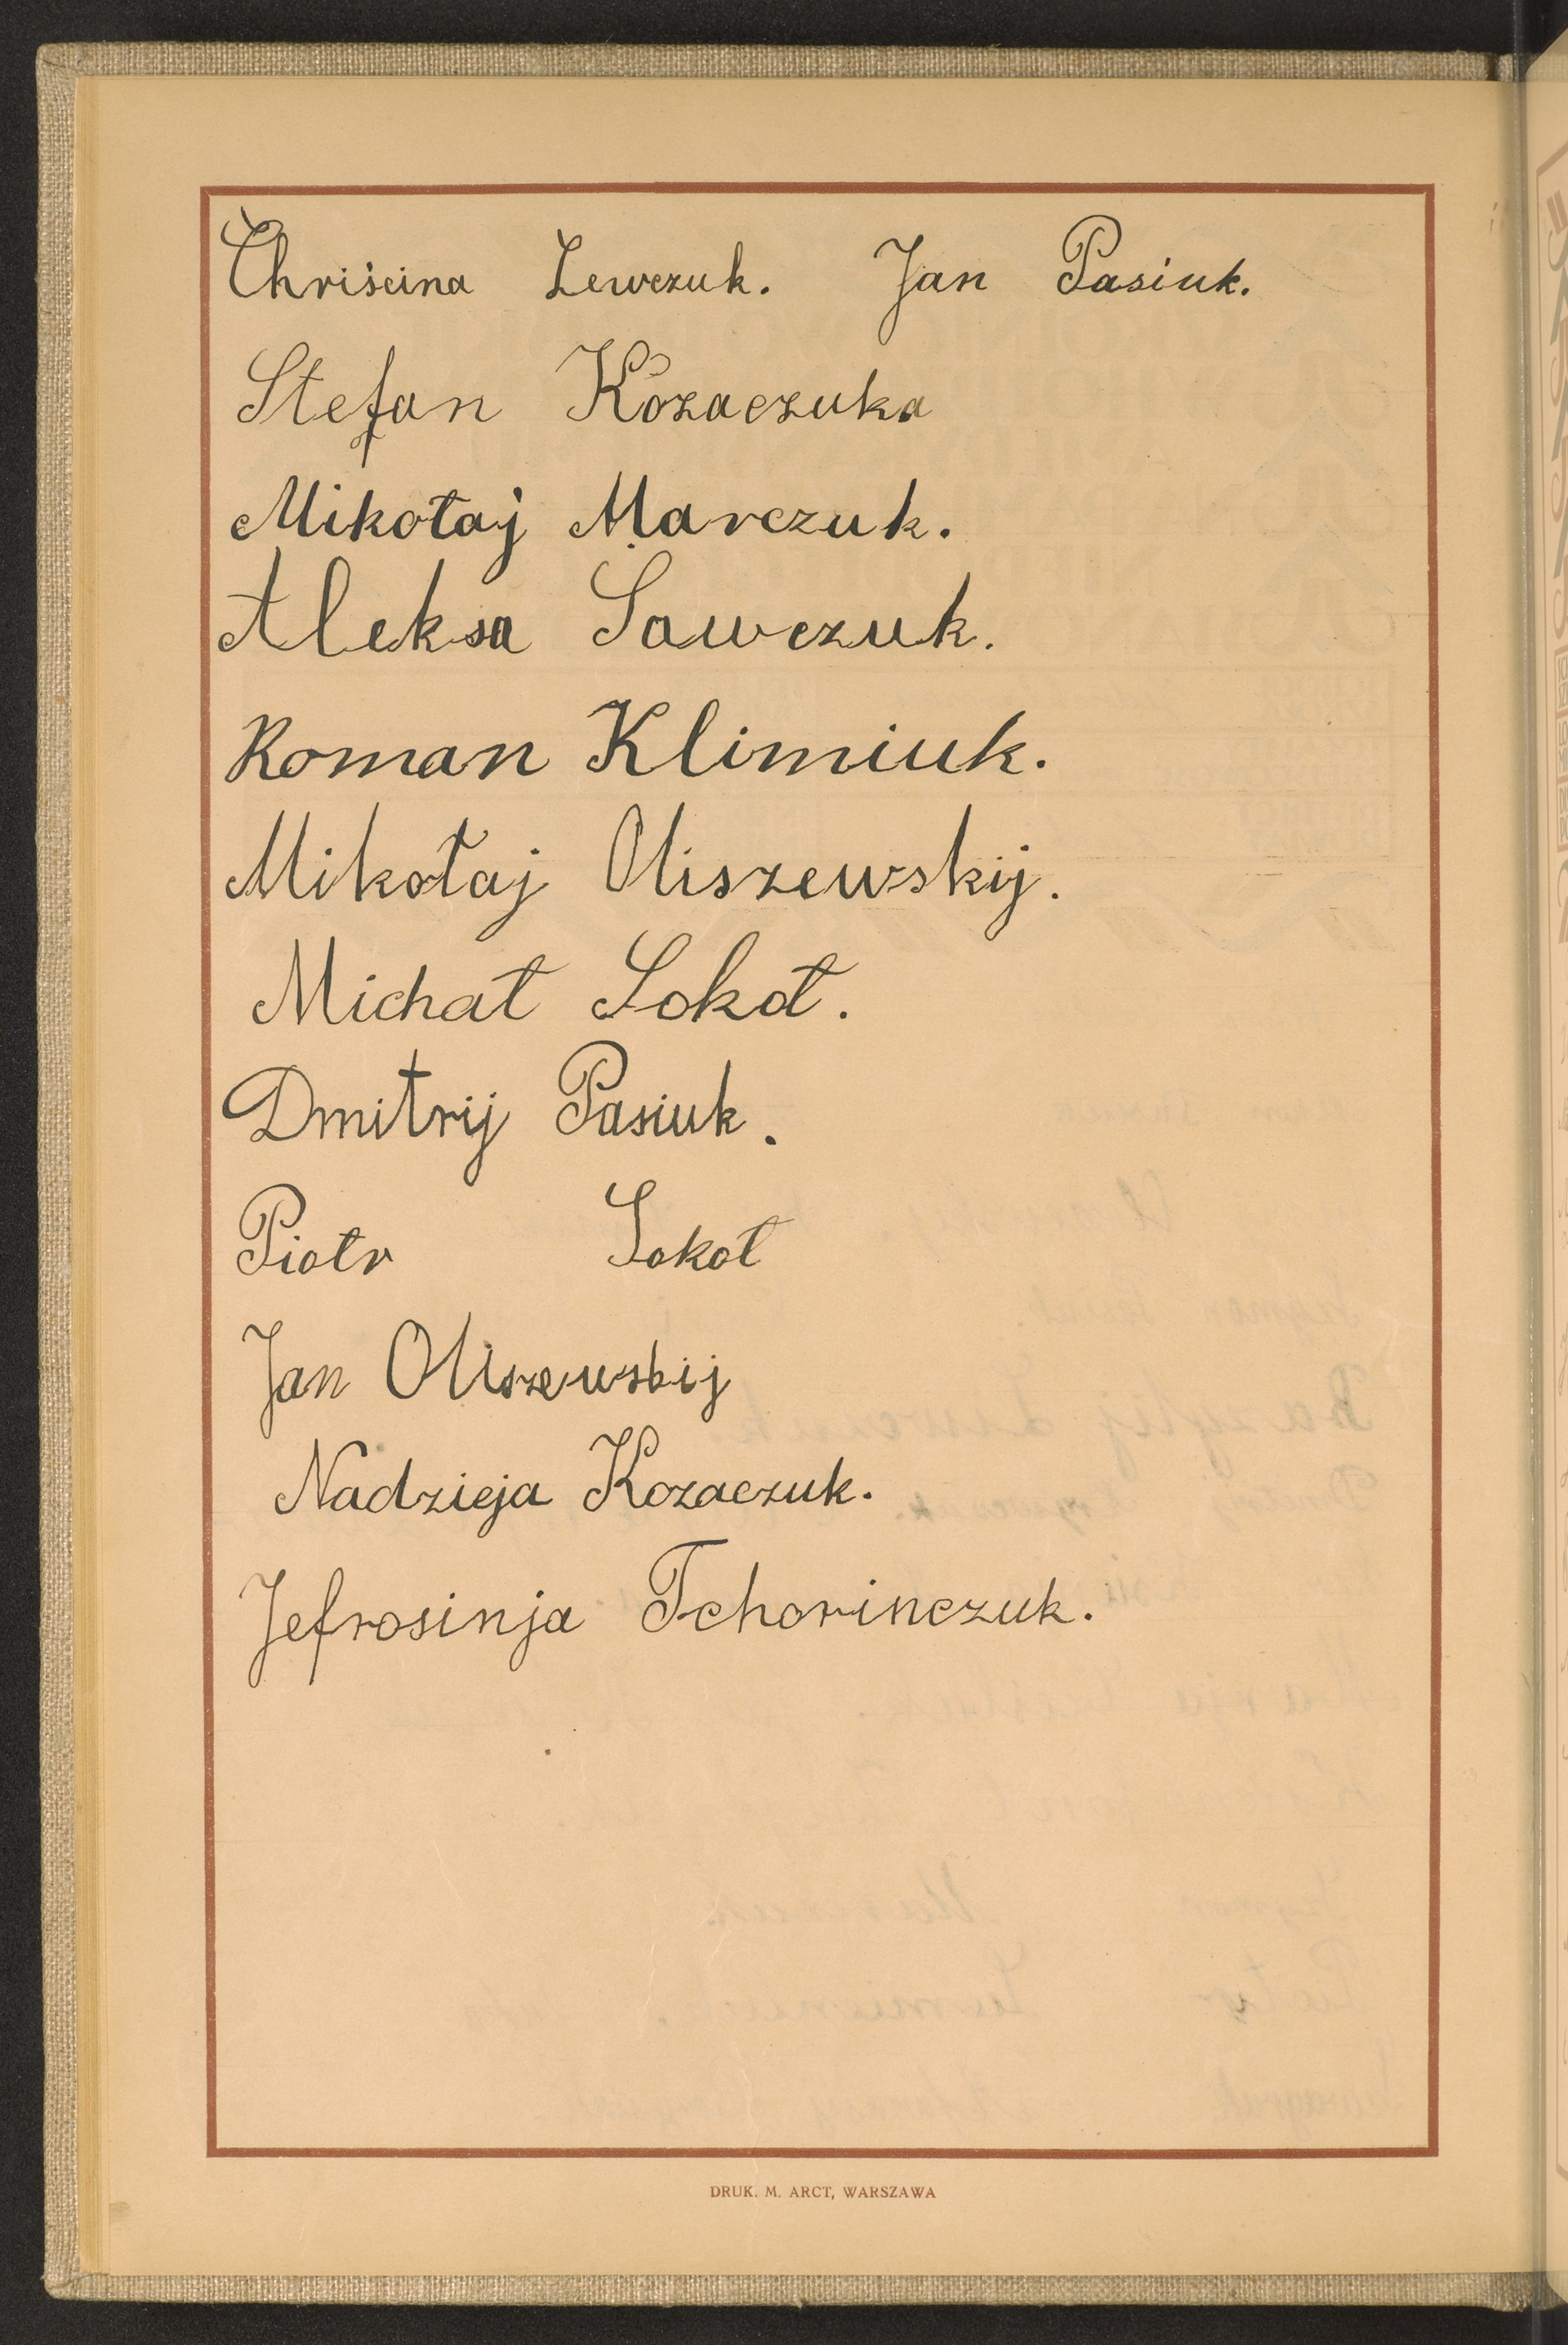 Chriścina Lewczuk. Jan Pasiuk.
Stefan Kozaczuka
Mikołaj Marczuk.
Aleksa Sawczuk.
Roman Klimiuk.
Mikołaj Oliszewskij.
Michał Sokoł.
Dmitrij Pasiuk.
Piotr Sokoł
Jan Oliszewskij
Nadzieja Kozaczuk.
Jefrosinja Tchorinczuk.
DRUK. M. ARCT, WARSZAWA